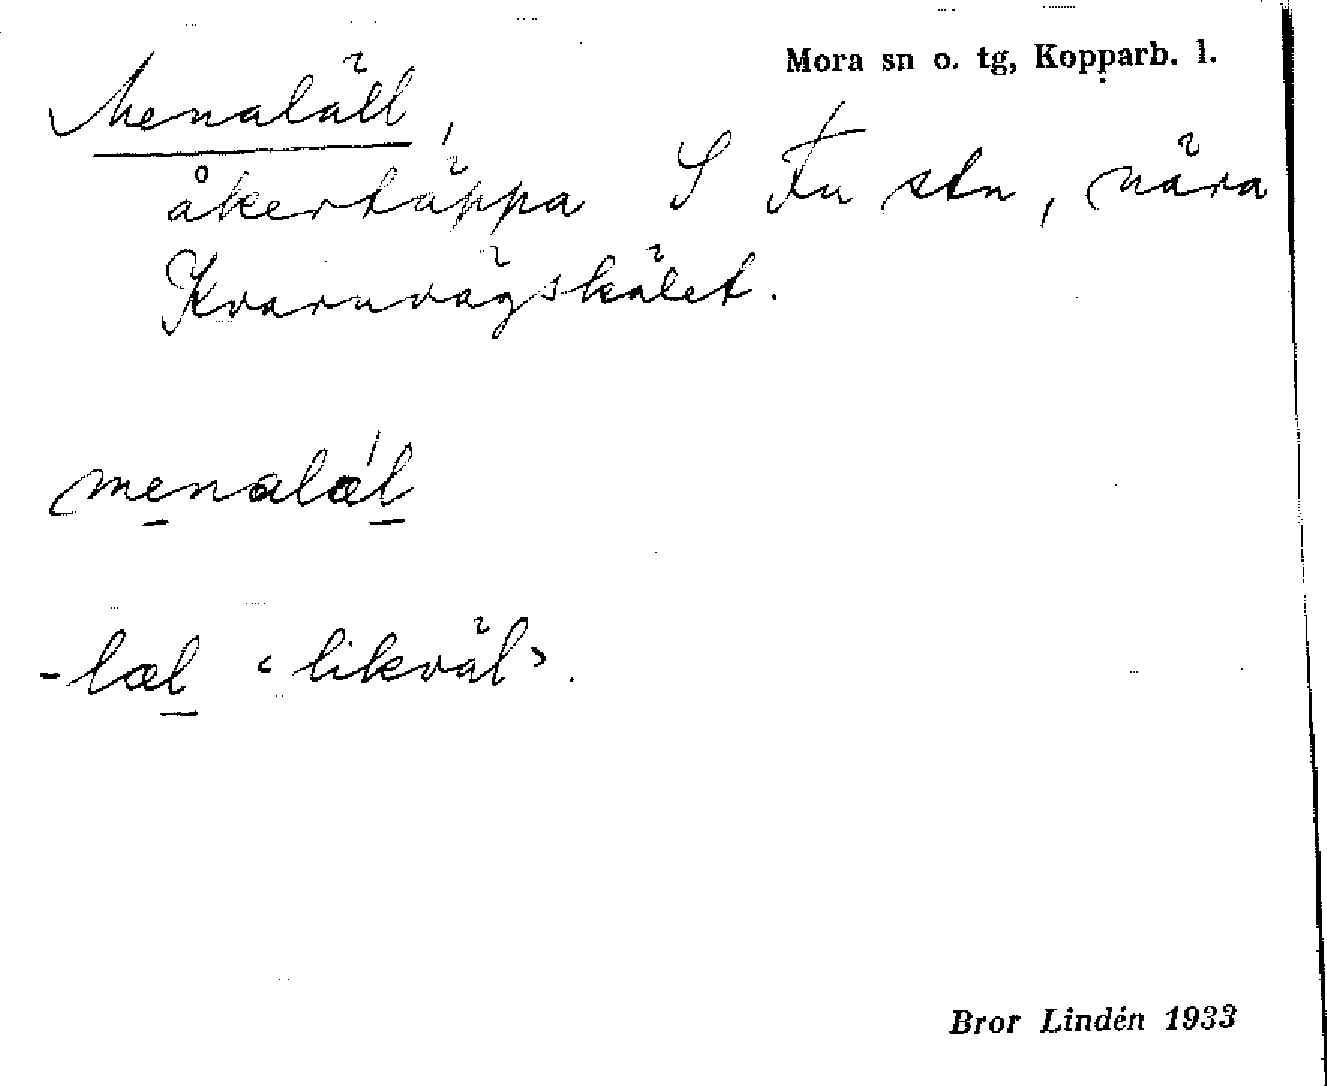 Mora sn o. tg, Kopparb. l.
Menaläll,
åkertäppa S Fu stn, nära
Kvarnvägskälet.
menalæl
-læl ‹likväl›.
Bror Lindén 1933